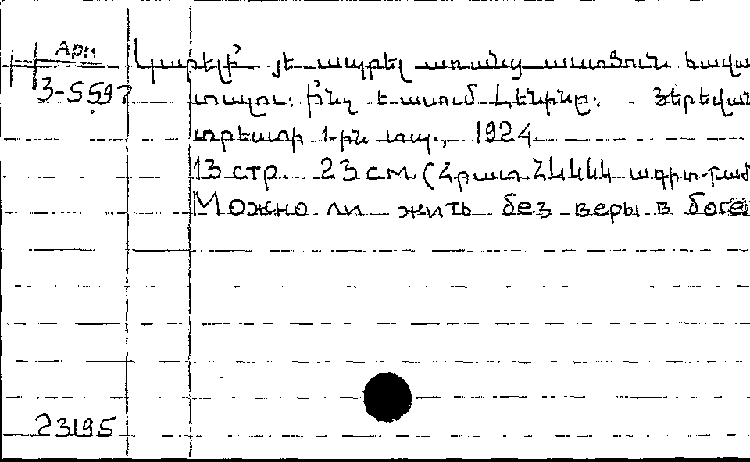 Арм
3-5597
Կարելի՞ յե ապրել առանց աստծուն հավա
տալու: ի՞նչ է ասում Լենինը: Յերեվան
պրետտրի 1-ին տպ., 1924
13 стр. 23 см. (Հրատ. ՀԿԿԿԿ ագիտ-բաժ
Можно ли жить без веры в бога
23195